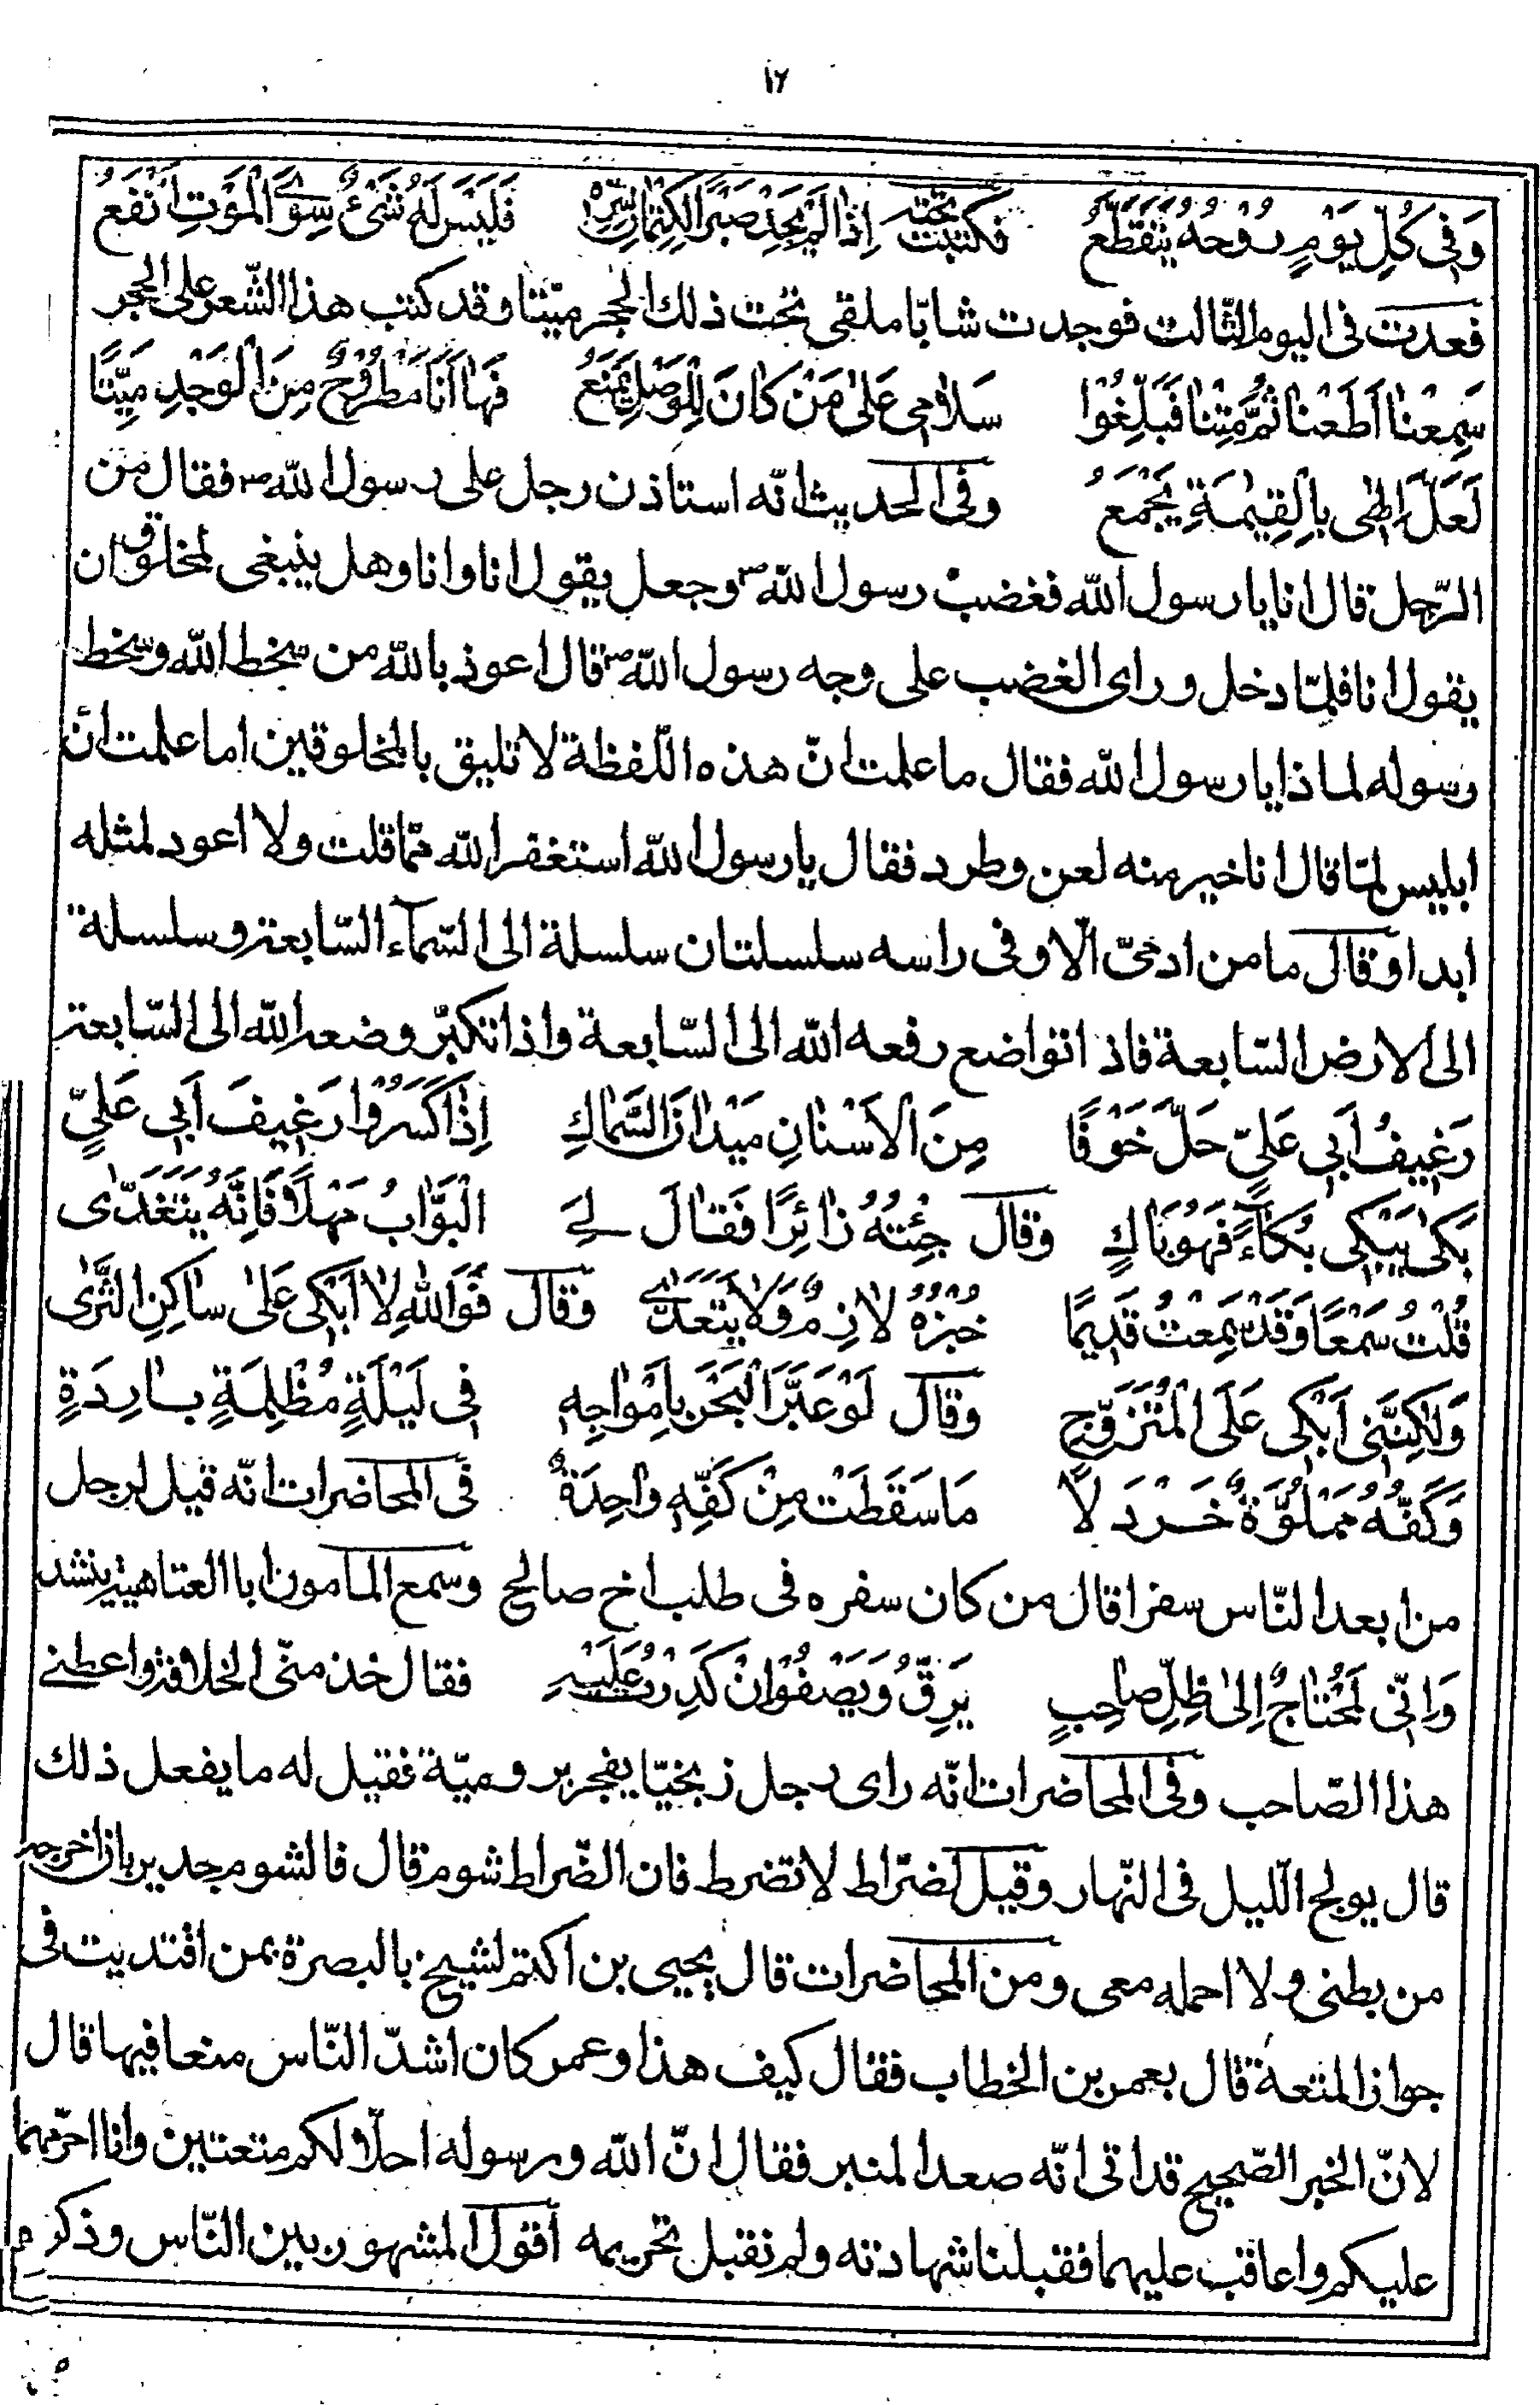 ١٢
وَفِى كُلِّ يَوْمٍ رُوْحُهُ يَتَقَطَّعُ فكتبت تحته اِذٰا لَمْ يَجِدْ صَبْرًا لِكِتْمٰانِ سِرِّهِ فَلَيْسَ لَهُ شَىْءٌ سِوَى الْمَوْتِ اَنْفَعُ
فعدت فى اليوم الثّالث فوجدت شابّا ملقى تحت ذلك الحجر ميّتا وقد كتب هذا الشّعر على الحجر
سَمِعْنٰا اَطَعْنٰا ثُمَّ مِتْنٰا فَبَلِّغُوا سَلاٰمِى عَلىٰ مَنْ كٰانَ لِلْوَصْلِ يَمْنَعُ فَهٰا اَنَا مَطْرُوْحٌ مِنَ الْوَجْدِ مَيِّتًا
لَعَلَّ اِلٰهِى بِالْقِيٰمَةِ يَجْمَعُ وفى الحديث انّه استاذن رجل على رسول الله ص فقال من
الرّجل قال انا يا رسول الله فغضب رسول الله ص وجعل يقول انا وانا وهل ينبغى لمخلوق ان
يقول انا فلمّا دخل وراى الغضب على وجه رسول الله ص قال اعوذ بالله من سخط الله وسخط
رسوله لماذا يا رسول الله فقال ما علمت انّ هذه اللّفظة لا تليق بالمخلوقين اما علمت انّ
ابليس لمّا قال انا خير منه لعن وطرد فقال يا رسول الله استغفر الله ممّا قلت ولا اعود لمثله
ابدا وقال ما من ادمىّ الّا وفى راسه سلسلتان سلسلة الى السّماء السّابعة وسلسلة
الى الارض السّابعة فاذا تواضع رفعه الله الى السّابعة واذا تكبّر وضعه الله الى السّابعة
رَغِيفُ اَبِى عَلِىٍّ حَلَّ خَوْفًا مِنَ الْاَسْنٰانِ مَيْدٰانَ السَّمٰاكِ اِذٰا كَسَرُوا رَغِيفَ اَبِى عَلِىٍّ
بَكىٰ يَبْكِى بُكٰاءً فَهُوَ بٰاكٍ وقال جِئْتُهُ زٰائِرًا فَقٰالَ لِى الْبَوّٰابُ مَهْلًا فَاِنَّهُ يَتَغَدّٰى
قُلْتُ سَمْعًا وَقَدْ سَمِعْتُ قَدِيمًا خُبْزُهُ لاٰزِمٌ وَلاٰ يَتَعَدّٰى وقال فَوَاللهِ لاٰ اَبْكِى عَلىٰ سٰاكِنِ الثَّرٰى
وَلٰكِنَّنِى اَبْكِى عَلَى الْمُتَزَوِّجِ وقال لَوْ عَبَرَ الْبَحْرَ بِاَمْوٰاجِهِ فِى لَيْلَةٍ مُظْلِمَةٍ بٰارِدَةٍ
وَكَفُّهُ مَمْلُوَّةٌ خَرْدَلًا مَا سَقَطَتْ مِنْ كَفِّهِ وٰاحِدَةٌ فى المحاضرات انّه قيل لرجل
من ابعد النّاس سفرا قال من كان سفره فى طلب اخ صالح وسمع المامون ابا العتاهية ينشد
وَاِنّى لَمُحْتٰاجٌ اِلىٰ ظِلِّ صٰاحِبٍ يَرِقُّ وَيَصْفُوْ اِنْ كَدِرْتُ عَلَيْهِ فقال خذ منّى الخلافة واعطنى
هذا الصّاحب وفى المحاضرات انّه راى رجل زنجيّا يفجر بروميّة فقيل له ما يفعل ذلك
قال يولج اللّيل فى النّهار وقيل لضرّاط لا تضرط فان الضّراط شوم قال فالشوم جدير بان اخرجه
من بطنى ولا احمله معى ومن المحاضرات قال يحيى بن اكثم لشيخ بالبصرة بمن اقتديت فى
جواز المتعة قال بعمر بن الخطاب فقال كيف هذا وعمر كان اشدّ النّاس منعا فيها قال
لانّ الخبر الصّحيح قد اتى انّه صعد المنبر فقال انّ الله ورسوله احلّا لكم متعتين وانا احرّمهما
عليكم واعاقب عليهما فقبلنا شهادته ولم نقبل تحريمه اقول المشهور بين النّاس وذكره